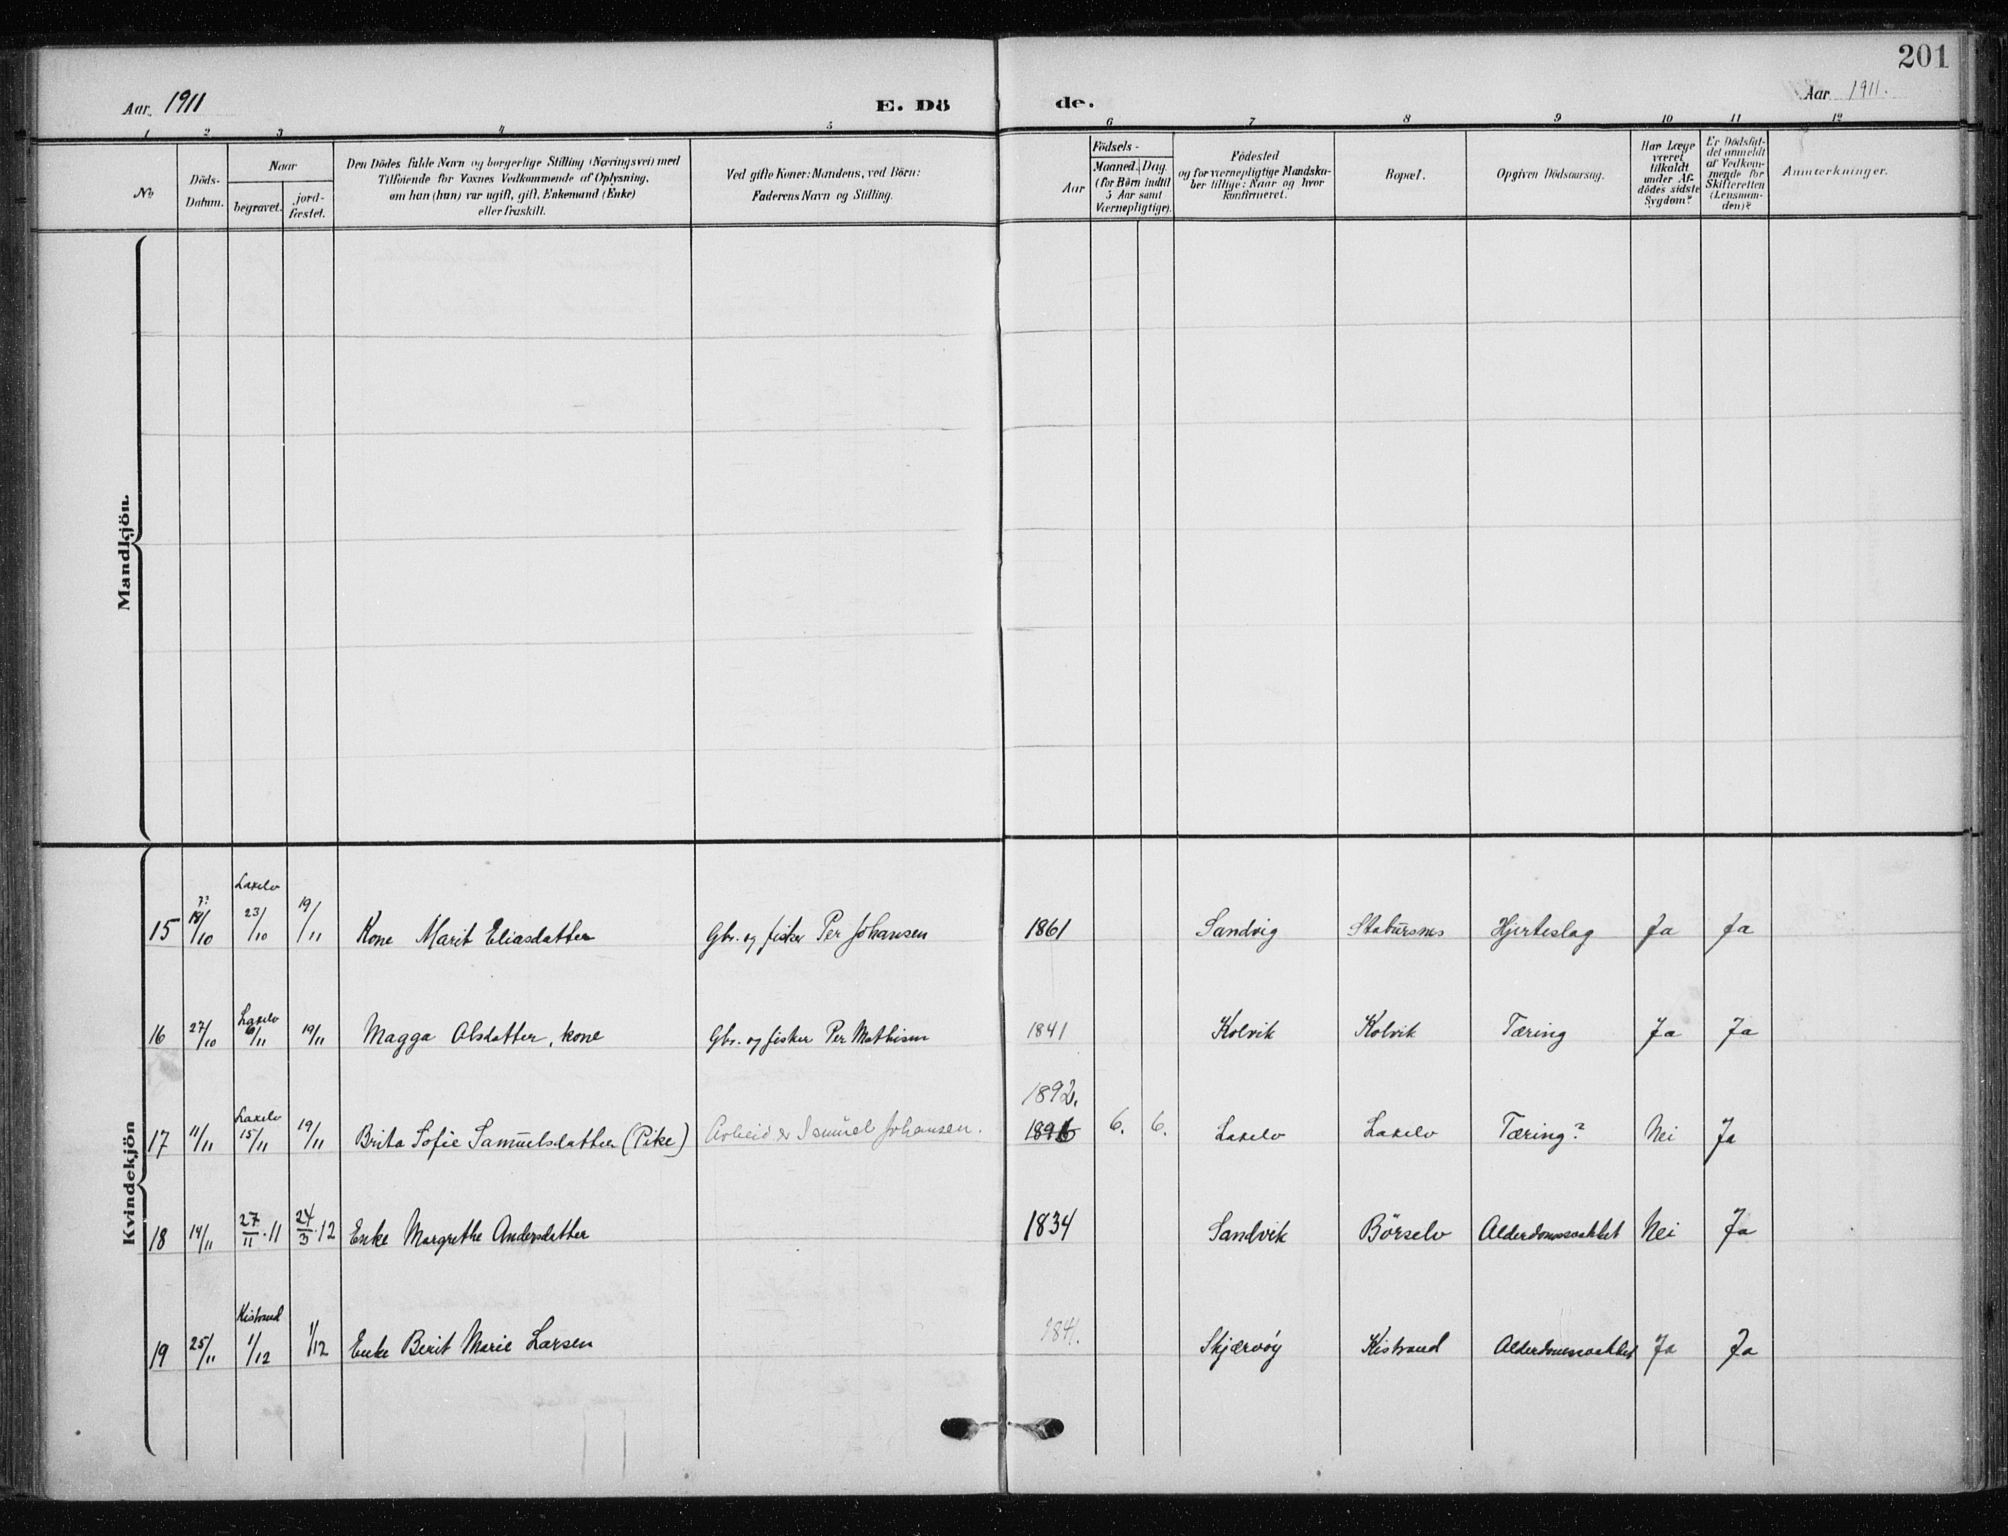 201
Aar 1911
E. Dö
de.
Aar 1911.
1 2 3 4 5 6 7 8 9 10 11 12
No
Döds-
Datum.
Naar
begravet.
jord-
fæstet.
Den Dödes fulde Navn og borgerlige Stilling (Næringsvei) med
Tilföiende for Voxnes Vedkommende af Oplysning,
om han (hun) var ugift, gift, Enkemand (Enke)
eller fraskilt.
Ved gifte Koner: Mandens, ved Börn:
Faderens Navn og Stilling.
Födsels-
Aar
Maaned. Dag.
(for Børn indtil
5 Aar samt
Værnepligtige).
Födested
og for værnepligtige Mandska-
ber tillige: Naar og hvor
konfirmeret.
Bopæl.
Opgiven Dödsaarsag.
Har Læge
været
tilkaldt
under Af-
dödes sidste
Sygdom?
Er Dödsfal-
det anmeldt
af Vedkom-
mende for
Skifteretten
(Lensman-
den)?
Anmærkninger.
Mandkjön.
Kvindekjön
15 18/10 Laxelv 23/10 19/11 Kone Marit Eliasdatter Gbr. og fisker Per Johansen 1861 Sandvig Stabursnes Hjerteslag Ja Ja
16 27/10 Laxelv 6/11 19/11 Magga Olsdatter, kone Gbr. og fisker Per Mathisen 1841 Kolvik Kolvik Tæring Ja Ja
1892.
17 11/11 Laxelv 15/11 19/11 Brita Sofie Samuelsdatter (Pike) Arbeider Samuel Johansen. 1896 6. 6. Laxelv Laxelv Tæring? Nei Ja
18 14/11 27/11.11 24/3.12 Enke Margrethe Andersdatter 1834 Sandvik Börselv Alderdomssvakhet Nei Ja
19 25/11 Kistrand 1/12 1/12 Enke Berit Marie Larsen 1841. Skjærvöy Kistrand Alderdomssvakhet Ja Ja